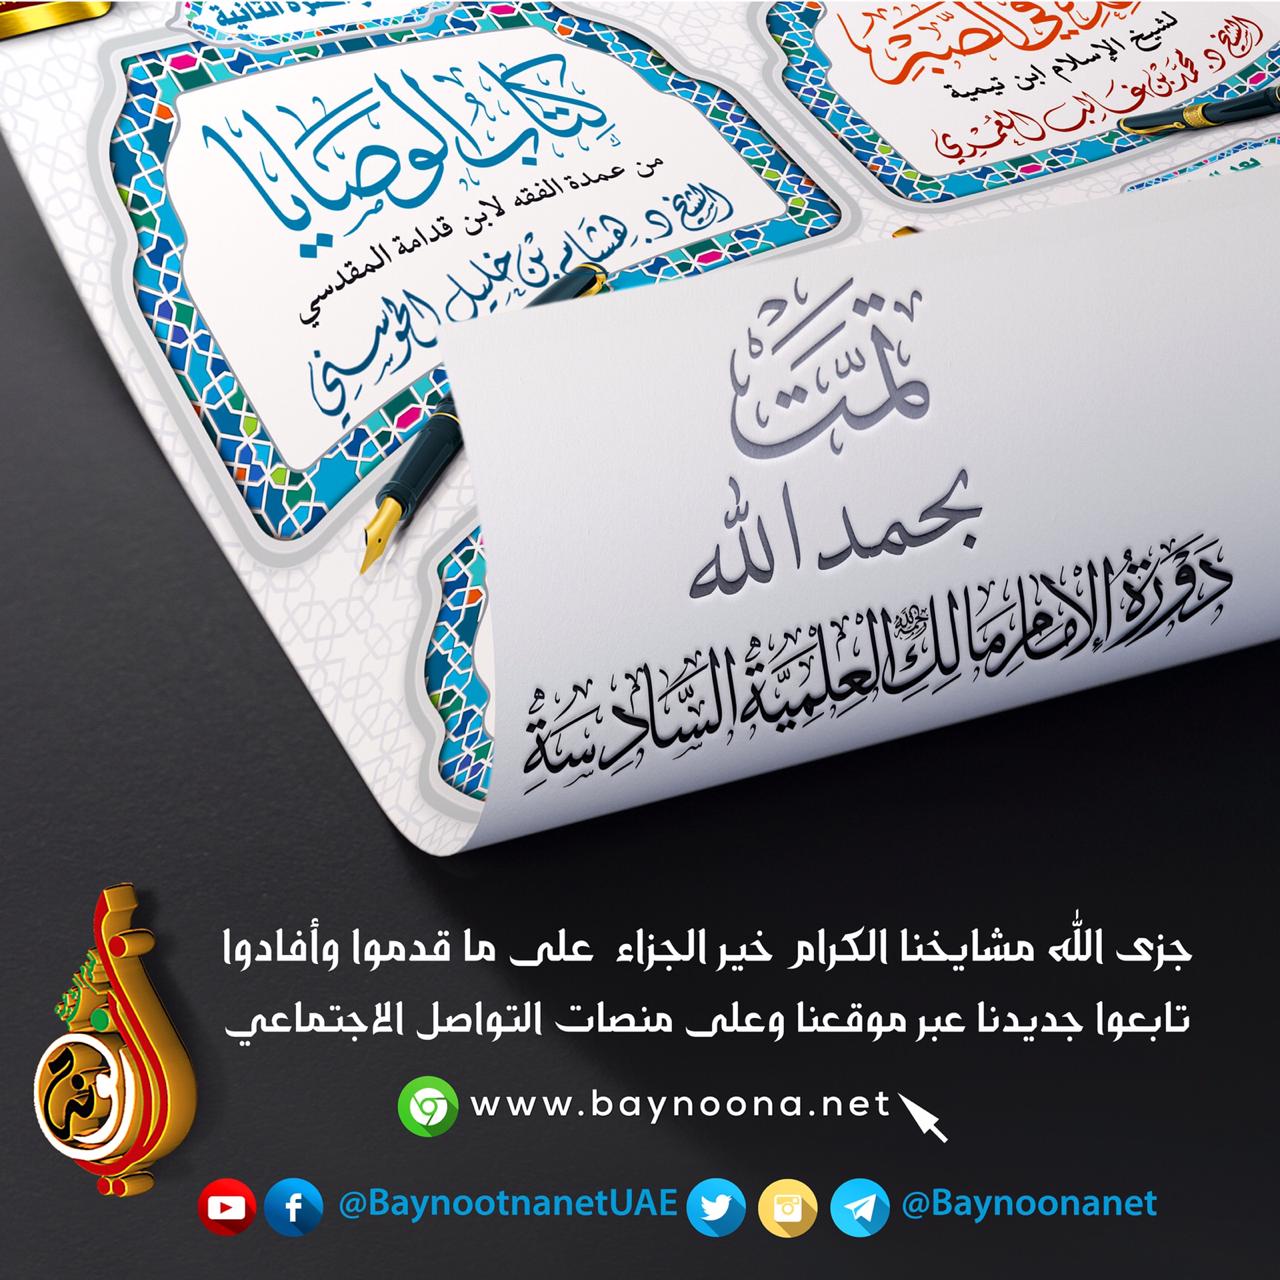 في الصبر
لشيخ الإسلام ابن تيمية
الشيخ د. محمد بن غالب العمري
كتاب الوصايا
من عمدة الفقه لابن قدامة المقدسي
الشيخ د. هشام بن خليل الحوسني
تمت
بحمد الله
دَوْرَةُ الإمَامِ مَالِك رحمه الله العِلْمِيَّةُ السَّادِسَةُ
جزى الله مشايخنا الكرام خير الجزاء على ما قدموا وأفادوا
تابعوا جديدنا عبر موقعنا وعلى منصات التواصل الاجتماعي
www.baynoona.net
@BaynootnanetUAE @Baynoonanet